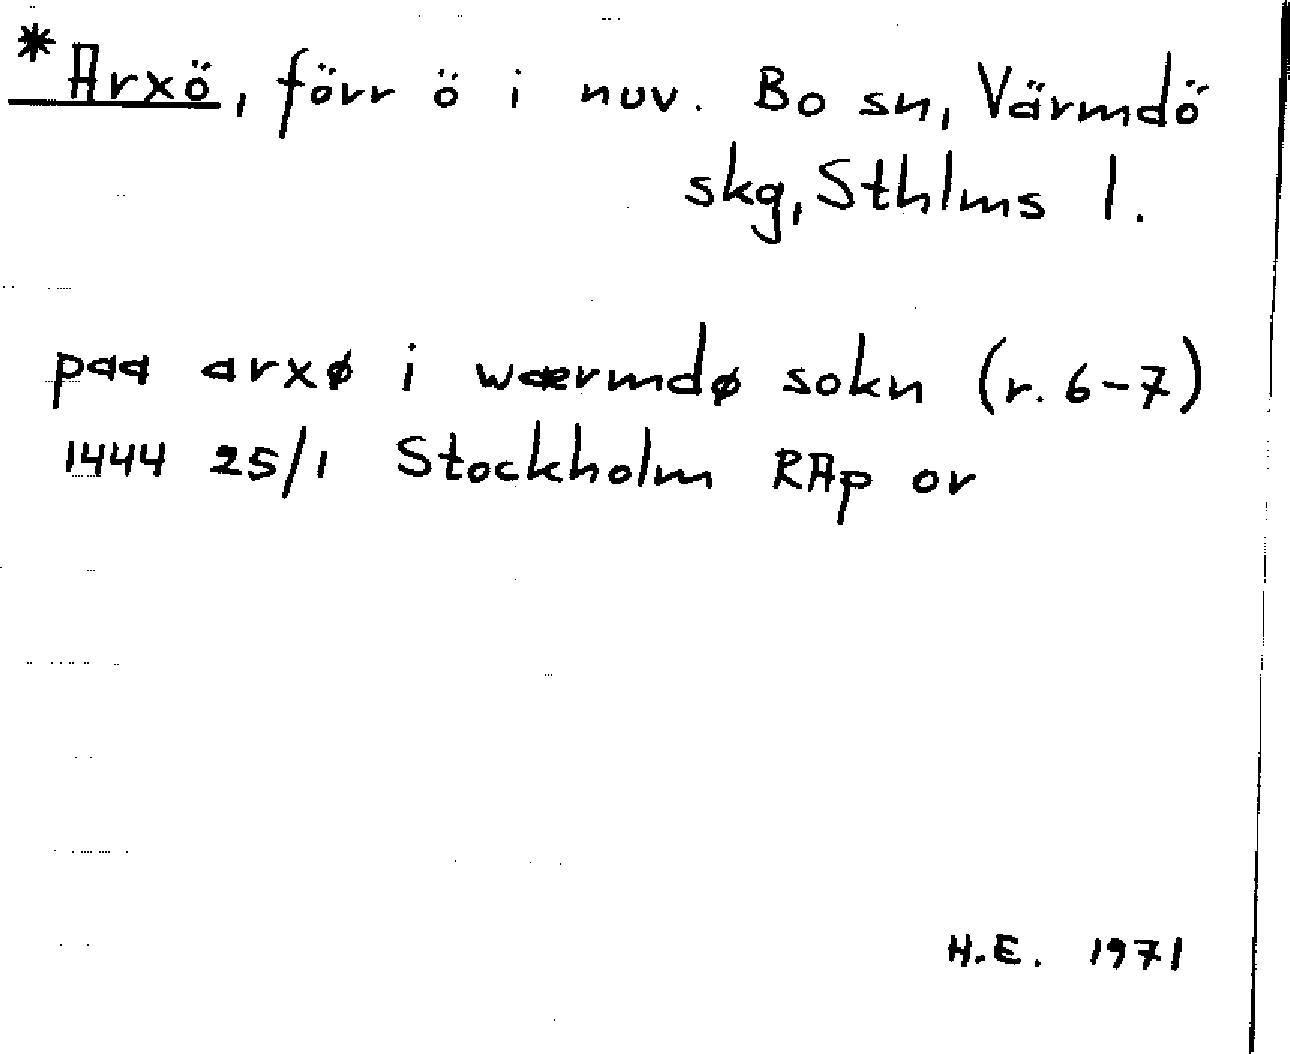 *Arxö, förr ö i nuv. Bo sn, Värmdö
skg, Sthlms l.
paa arxø i wærmdø sokn (r. 6-7)
1444 25/1 Stockholm RAp or
H.E. 1971